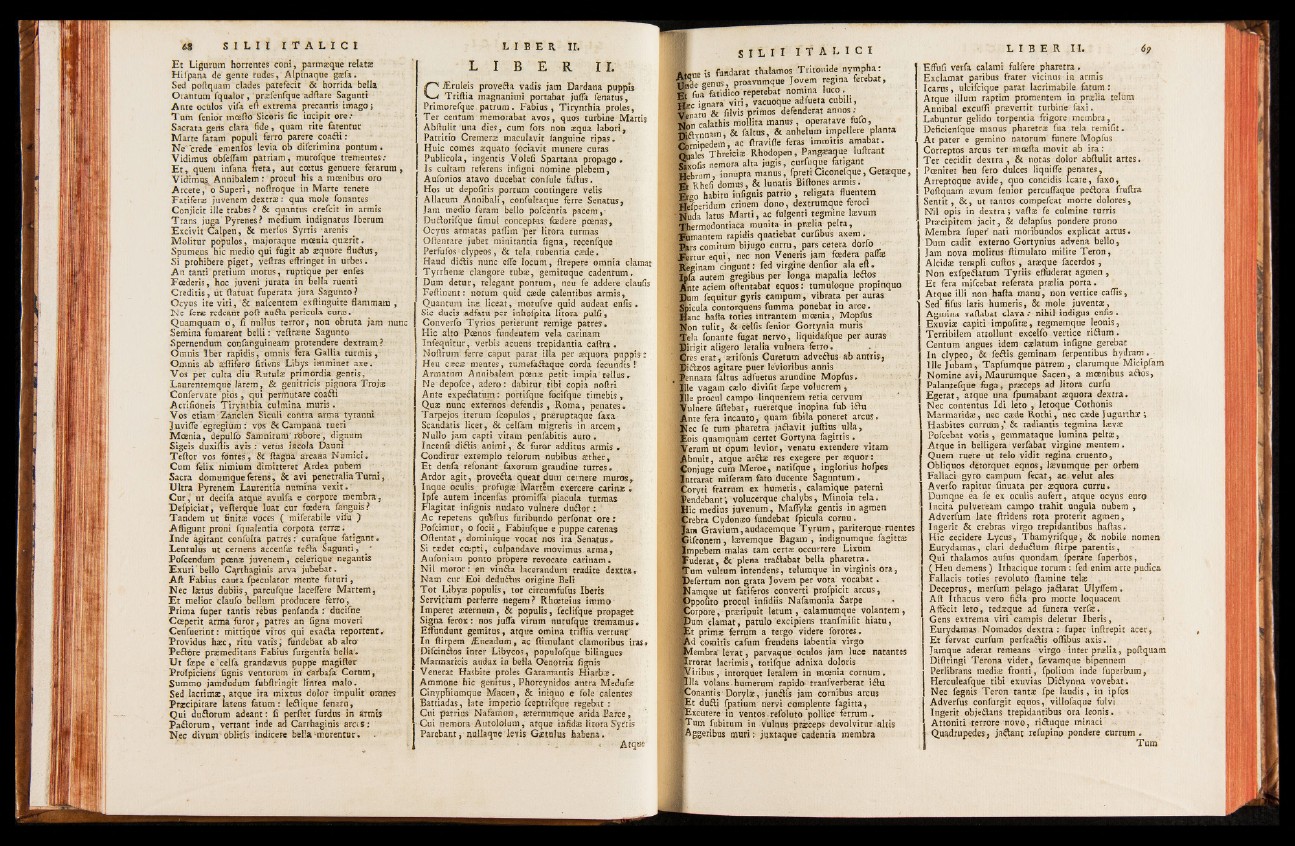 68 SILII ITALICI
Et Ligurum horrentes coni, parmæque relatæ
Hiſpana de gente rudes, Alpinaque gæſa.
Sed poſtquam clades patefecit & horrida bella
Orantum ſqualor, præſenſque adſtare Sagunti
Ante oculos viſa eſt extrema precantis imago;
Tum ſenior mœſto Sicoris ſic incipit ore:
Sacrata gens clara fide, quam rite fatentur
Marte ſatam populi ferro parere coacti:
Ne crede emenſos levia ob diſcrimina pontum.
Vidimus obſeſſam patriam, muroſque trementes:
Et, quem inſana freta, aut cœtus genuere ferarum,
Vidimus Annibalem: procul his a mœnibus oro
Arcete, o Superi, noſtroque in Marte tenete
Fatiferæ juvenem dextræ: qua mole ſonantes
Conjicit ille trabes? & quantus creſcit in armis
Trans juga Pyrenes? medium indignatus Iberum
Excivit Calpen, & merſos Syrtis arenis
Molitur populos, majoraque mœnia quærit.
Spumeus hic medio qui ſugit ab æquore fluctus,
Si prohibere piget, veſtras effringet in urbes.
An tanti pretium motus, ruptique per enſes
Fœderis, hoc juveni jurata in bella ruenti
Creditis, ut ſtatuat ſuperata jura Sagunto?
Ocyus ite viri, & naſcentem exſtinguite flammam,
Ne ſeræ redeant poſt aucta pericula curæ.
Quamquam o, ſi nullus terror, non obruta jam nunc
Semina fumarent belli: veſtræne Sagunto
Spernendum conſanguineam protendere dextram?
Omnis Iber rapidis, omnis fera Gallia turmis,
Omnis ab æſtifero ſitiens Libys imminet axe.
Vos per culta diu Rutulæ primordia gentis,
Laurentemque larem, & genitricis pignora Trojæ
Conſervate pios, qui permutare coacti
Acriſioneis Tirynthia culmina muris.
Vos etiam Zanclen Siculi contra arma tyranni
Juviſſe egregium: vos & Campana tueri
Mœnia, depulſo Samnitum robore, dignum
Sigeis duxiſtis avis: vetus incola Dauni
Teſtor vos fontes, & ſtagna arcana Numici.
Cum felix nimium dimitteret Ardea pubem
Sacra domumque ferens, & avi penetralia Turni,
Ultra Pyrenem Laurentia numina vexit.
Cur, ut deciſa atque avulſa e corpore membra,
Deſpiciar, veſterque luat cur fœdera ſanguis?
Tandem ut finitæ voces ( miſerabile viſu )
Affligunt proni ſqualentia corpora terræ.
Inde agitant conſulta patres: curaſque fatigant.
Lentulus ut cernens accenſæ tecta Sagunti,
Poſcendum pœnæ juvenem, celerique negantis
Exuri bello Carthaginis arva jubebat.
Aſt Fabius cauta ſpeculator mente futuri,
Nec lætus dubiis, parcuſque laceſſere Martem,
Et melior clauſo bellum producere ferro,
Prima ſuper tantis rebus penſanda: ducisne
Cœperit arma furor, patres an ſigna moveri
Cenſuerint: mittique viros qui exacta reportent.
Providus hæc, ritu vatis, fundebat ab alto
Pectore præmeditans Fabius ſurgentia bella.
Ut ſæpe e celſa grandævus puppe magiſter
Proſpiciens ſignis venturum in carbaſa Corum,
Summo jamdudum ſubſtringit lintea malo.
Sed lacrimæ, atque ira mixtus dolor impulit omnes
Præcipitare latens fatum: lectique ſenatu,
Qui ductorum adeant: ſi perſtet ſurdus in armis
Pactorum, vertant inde ad Carthaginis arces:
Nec divum oblitis indicere bella morentur.
LIBER II.
LIBER II.
CÆruleis provecta vadis jam Dardana puppis
Triſtia magnanimi portabat juſſa ſenatus,
Primoreſque patrum. Fabius, Tirynthia proles,
Ter centum memorabat avos, quos turbine Martis
Abſtulit una dies, cum fors non æqua labori,
Patritio Cremeræ maculavit ſanguine ripas.
Huic comes æquato ſociavit munere curas
Publicola, ingentis Voleſi Spartana propago.
Is cultam referens inſigni nomine plebem,
Auſonios atavo ducebat conſule faſtus.
Hos ut depoſitis portum contingere velis
Allatum Annibali, conſultaque ferre Senatus,
Jam medio ſeram bello poſcentia pacem,
Ductoriſque ſimul conceptas fœdere pœnas,
Ocyus armatas paſſim per litora turmas
Oſtentare jubet minitantia ſigna, recenſque
Perfuſos clypeos, & tela rubentia cæde.
Haud dictis nunc eſſe locum, ſtrepere omnia clamat
Tyrrhenæ clangore tubæ, gemituque cadentum.
Dum detur, relegant pontum, neu ſe addere clauſis
Feſtinent: notum quid cæde calentibus armis,
Quantum iræ liceat, motuſve quid audeat enſis.
Sic ducis adfatu per inhoſpita litora pulſi,
Converſo Tyrios petierunt remige patres.
Hic alto Pœnus fundentem vela carinam
Inſequitur, verbis acuens trepidantia caſtra.
Noſtrum ferre caput parat illa per æquora puppis:
Heu cæcæ mentes, tumefactaque corda ſecundis!
Armatum Annibalem pœnæ petit impia tellus.
Ne depoſce, adero: dabitur tibi copia noſtri
Ante expectatum: portiſque focifque timebis,
Quæ nunc externos defendis, Roma, penates.
Tarpejos iterum ſcopulos, præruptaque ſaxa
Scandatis licet, & celſam migretis in arcem,
Nullo jam capti vitam penſabitis auro.
Incenſi dictis animi, & furor additus armis.
Conditur extemplo telorum nubibus æther,
Et denſa reſonant ſaxorum grandine turres.
Ardor agit, provecta queat dum cernere muros,
Inque oculis profugæ Martem exercere carinæ.
Ipſe autem incenſas promiſſa piacula turmas
Flagitat inſignis nudato vulnere ductor:
Ac repetens queſtus furibundo perſonat ore:
Poſcimur, o ſocii, Fabiuſque e puppe catenas
Oſtentat, dominique vocat nos ira Senatus.
Si tædet cœpti, culpandave movimus arma,
Auſoniam ponto propere revocate carinam.
Nil moror: en vincta lacerandum tradite dextra,
Nam cur Eoi deductus origine Beli
Tot Libyæ populis, tot circumfuſus Iberis
Servitium perferre negem? Rhœteius immo
Imperet æternum, & populis, ſecliſque propaget
Signa ferox: nos juſſa virum nutuſque tremamus.
Effundunt gemitus, atque omina triſtia vertunt
In ſtirpem Æneadum, ac ſtimulant clamoribus iras.
Diſcinctos inter Libycos, populoſque bilingues
Marmaricis audax in bella Oenotria ſignis
Venerat Haſbite proles Garamantis Hiarbæ.
Ammone hic genitus, Phorcynidos antra Meduſæ
Cinyphiumque Macen, & iniquo e ſole calentes
Battiadas, late imperio ſceptriſque regebat:
Cui patrius Naſamon, æternumque arida Barce,
Cui nemora Autololum, atque infidæ litora Syrtis
Parebant, nullaque levis Gætulus habena.
Atque
SILII ITALICI
Atque is fundarat thalamos Tritonide nympha:
Unde genus, proavumque Jovem regina ferebat,
Et ſua fatidico repetebat nomina luco.
Hæc ignara viri, vacuoque adſueta cubili,
Venatu & ſilvis primos defenderat annos:
Non calathis mollita manus, operatave fuſo,
Dictynnam, & ſaltus, & anhelum impellere planta
Cornipedem, ac ſtraviſſe feras immitis amabat.
Quales Threiciæ Rhodopen, Pangæaque luſtrant
Saxoſis nemora alta jugis, curſuque fatigant
Hebrum, innupta manus, ſpreti Ciconeſque, Getæque,
Et Rheſi domus, & lunatis Biſtones armis.
Ergo habitu inſignis patrio, religata fluentem
Heſperidum crinem dono, dextrumque feroci
Nuda latus Marti, ac fulgenti tegmine lævum
Thermodontiaca munita in prælia pelta,
Fumantem rapidis quatiebat curſibus axem.
Pars comitum bijugo curru, pars cetera dorſo
Fertur equi, nec non Veneris jam fœdera paſſæ
Reginam cingunt: ſed virgine denſior ala eſt.
Ipſa autem gregibus per longa mapalia lectos
Ante aciem oſtentabat equos: tumuloque propinquo
Dum ſequitur gyris campum, vibrata per auras
Spicula contorquens ſumma ponebat in arce.
Hanc haſta toties intrantem mœnia, Mopſus
Non tulit, & celſis ſenior Gortynia muris
Tela ſonante fugat nervo, liquidaſque per auras
Dirigit aligero letalia vulnera ferro.
Cres erat, æriſonis Curetum advectus ab antris,
Dictæos agitare puer levioribus annis
Pennata ſaltus adſuetus arundine Mopſus.
Ille vagam cælo diviſit ſæpe volucrem,
Ille procul campo linquentem retia cervum
Vulnere ſiſtebat, rueretque inopina ſub ictu
Ante fera incauto, quam ſibila poneret arcus.
Nec ſe tum pharetra jactavit juſtius ulla,
Eois quamquam certet Gortyna ſagittis.
Verum ut opum levior, venatu extendere vitam
Abnuit, atque arctæ res exegere per æquor:
Conjuge cum Meroe, natiſque, inglorius hoſpes
Intrarat miſeram fato ducente Saguntum.
Coryti fratrum ex humeris, calamique paterni
Pendebant, volucerque chalybs, Minoia tela.
Hic medius juvenum, Maſſylæ gentis in agmen
Crebra Cydonæo fundebat ſpicula cornu.
Jam Gravium, audacemque Tyrum, pariterque ruentes
Giſconem, ſævemque Bagam, indignumque ſagittæ
Impebem malas tam certæ occurrere Lixum
Fuderat, & plena tractabat bella pharetra.
Tum vultum intendens, telumque in virginis ora,
Deſertum non grata Jovem per vota vocabat.
Namque ut fatiferos converti proſpicit arcus,
Oppoſito procul inſidiis Naſamonia Sarpe
Corpore, præripuit letum, calamumque volantem,
Dum clamat, patulo excipiens tranſmiſit hiatu,
Et primæ ferrum a tergo videre ſorores.
Ad comitis caſum frendens labentis virgo
Membra levat, parvaque oculos jam luce natantes
Irrorat lacrimis, totiſque adnixa doloris
Viribus, intorquet letalem in mœnia cornum.
Illa volans humerum rapido tranſverberat ictu
Conantis Dorylæ, junctis jam cornibus arcus
Et ducti ſpatium nervi complente ſagitta,
Excutere in ventos reſoluto pollice ferrum.
Tum ſubitum in vulnus præceps devolvitur altis
Aggeribus muri: juxtaque cadentia membra
LIBER II. 69
Effuſi verſa calami fulſere pharetra.
Exclamat paribus frater vicinus in armis
Icarus, ulciſcique parat lacrimabile fatum:
Atque illum raptim promentem in prælia telum
Annibal excuſſi prævertit turbine ſaxi.
Labuntur gelido torpentia frigore membra,
Deficienſque manus pharetræ ſua tela remiſit.
At pater e gemino natorum funere Mopſus
Correptos arcus ter mœſta movit ab ira:
Ter cecidit dextra, & notas dolor abſtulit artes.
Pœnitet heu ſero dulces liquiſſe penates,
Arreptoque avide, quo concidis Icare, ſaxo,
Poſtquam ævum ſenior percuſſaque pectora fruſtra
Sentit, &, ut tantos compeſcat morte dolores,
Nil opis in dextra; vaſtæ ſe culmine turris
Præcipitem jacit, & delapſus pondere prono
Membra ſuper nati moribundos explicat artus.
Dum cadit externo Gortynius advena bello,
Jam nova molitus ſtimulato milite Teron,
Alcidæ templi cuſtos, aræque ſacerdos,
Non exſpectatum Tyriis effuderat agmen,
Et fera miſcebat referata prælia porta.
Atque illi non haſta manu, non vertice caſſis,
Sed fiſus latis humeris, & mole juventæ,
Agmina vaſtabat clava: nihil indigus enſis.
Exuviæ capiti impoſitæ, tegmemque leonis,
Terribilem attollunt excelſo vertice rictum.
Centum angues idem cælatum inſigne gerebat
In clypeo, & ſectis geminam ſerpentibus hydram.
Ille Jubam, Tapſumque patrem, clarumque Micipſam
Nomine avi, Maurumque Sacen, a mœnibus actos,
Palanteſque fuga, præceps ad litora curſu
Egerat, atque una ſpumabant æquora dextra.
Nec contentus Idi leto, letoque Cothonis
Marmaridæ, nec cæde Rothi, nec cæde Jugurthæ;
Haſbites currum, & radiantis tegmina lævæ
Poſcebat votis, gemmataque lumina peltæ,
Atque in belligera verſabat virgine mentem.
Quem ruere ut telo vidit regina cruento,
Obliquos detorquet equos, lævumque per orbem
Fallaci gyro campum ſecat, ac velut ales
Averſo rapitur ſinuata per æquora curru.
Dumque ea ſe ex oculis aufert, atque ocyus euro
Incita pulveream campo trahit ungula nubem,
Adverſum late ſtridens rota proterit agmen,
Ingerit & crebras virgo trepidantibus haſtas.
Hic cecidere Lycus, Thamyriſque, & nobile nomen
Eurydamas, clari deductum ſtirpe parentis,
Qui thalamos auſus quondam ſperare ſuperbos,
( Heu demens ) Ithacique torum: ſed enim arte pudica
Fallacis toties revoluto ſtamine telæ
Deceptus, merſum pelago jactarat Ulyſſem.
Aſt Ithacus vero ficta pro morte loquacem
Affecit leto, tedæque ad funera verſæ.
Gens extrema viri campis deletur Iberis,
Eurydamas Nomados dextra: ſuper inſtrepit acer,
Et ſervat curſum perfractis oſſibus axis.
Jamque aderat remeans virgo inter prælia, poſtquam
Diſtringi Terona videt, ſævamque bipennem
Perlibrans mediæ fronti, ſpolium inde ſuperbum,
Herculeaſque tibi exuvias Dictynna vovebat.
Nec ſegnis Teron tantæ ſpe laudis, in ipſos
Adverſus conſurgit equos, villoſaque fulvi
Ingerit objectans trepidantibus ora leonis.
Attoniti terrore novo, rictuque minaci
Quadrupedes, jactant reſupino pondere currum.
Tum